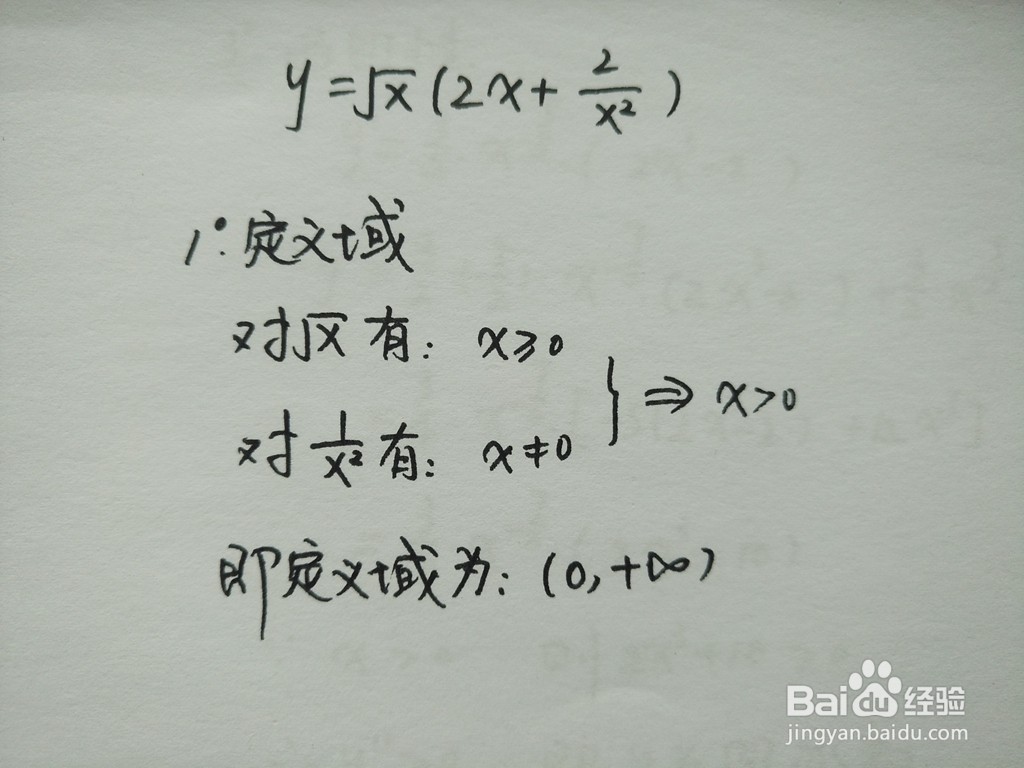 y=√x(2x+2/x²)
1°.定义域
对√x有: x≥0
对1/x²有: x≠0
} ⇒ x>0
即定义域为: (0,+∞)
Baidu经验
jingyan.baidu.com